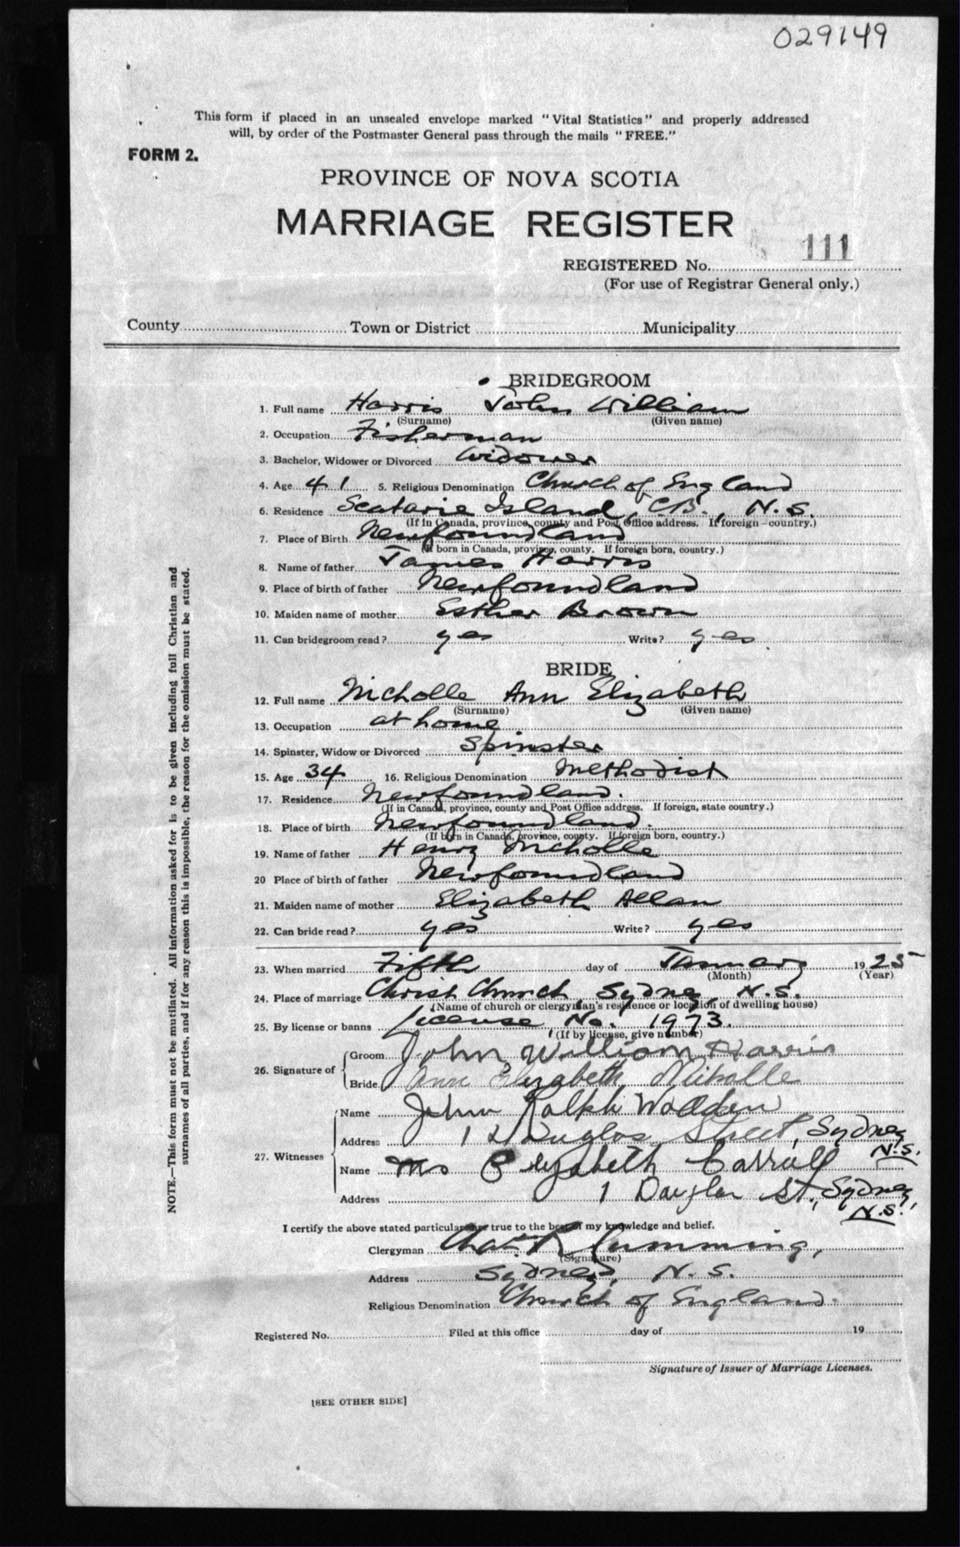 029149
This form if placed in an unsealed envelope marked "Vital Statistics" and properly addressed
will, by order of the Postmaster General pass through the mails "FREE."
FORM 2.
PROVINCE OF NOVA SCOTIA
MARRIAGE REGISTER
111
REGISTERED No.
(For use of Registrar General only.)
County Town or District Municipality
BRIDEGROOM
1. Full name Harris John William
(Surname) (Given name)
2. Occupation Fisherman
3. Bachelor, Widower or Divorced Widower
4. Age 41 5. Religious Denomination Church of England
6. Residence Scatarie Island, C.B., N.S.
(If in Canada, province, county and Post Office address. If foreign - country.)
7. Place of Birth Newfoundland
(If born in Canada, province, county. If foreign born, country.)
8. Name of father James Harris
9. Place of birth of father Newfoundland
10. Maiden name of mother Esther Brown
11. Can bridegroom read? yes Write? yes
BRIDE
12. Full name Nicholle Ann Elizabeth
(Surname) (Given name)
13. Occupation at home
14. Spinster, Widow or Divorced Spinster
15. Age 34 16. Religious Denomination Methodist
17. Residence Newfoundland.
(If in Canada, province, county and Post Office address. If foreign, state country.)
18. Place of birth Newfoundland.
(If born in Canada, province, county. If foreign born, country.)
19. Name of father Henry Nicholle
20 Place of birth of father Newfoundland
21. Maiden name of mother Elizabeth Allan
22. Can bride read? yes Write? yes
23. When married Fifth day of January 1925
(Month) (Year)
24. Place of marriage Christ Church, Sydney, N.S.
(Name of church or clergyman's residence or location of dwelling house)
25. By license or banns License No. 1973.
(If by license, give number)
26. Signature of
Groom John William Harris
Bride Ann Elizabeth Nicholle
27. Witnesses
Name John Ralph Wadden
Address 1 Douglas Street, Sydney N.S.
Name Mrs Elizabeth Carroll
Address 1 Douglas St, Sydney, N.S.
I certify the above stated particulars are true to the best of my knowledge and belief.
Clergyman Chas. R Cumming,
(Signature)
Address Sydney, N.S.
Religious Denomination Church of England.
Registered No. Filed at this office day of 19
Signature of Issuer of Marriage Licenses.
[SEE OTHER SIDE]
NOTE.—This form must not be mutilated. All information asked for is to be given including full Christian and
surnames of all parties, and if for any reason this is impossible, the reason for the omission must be stated.